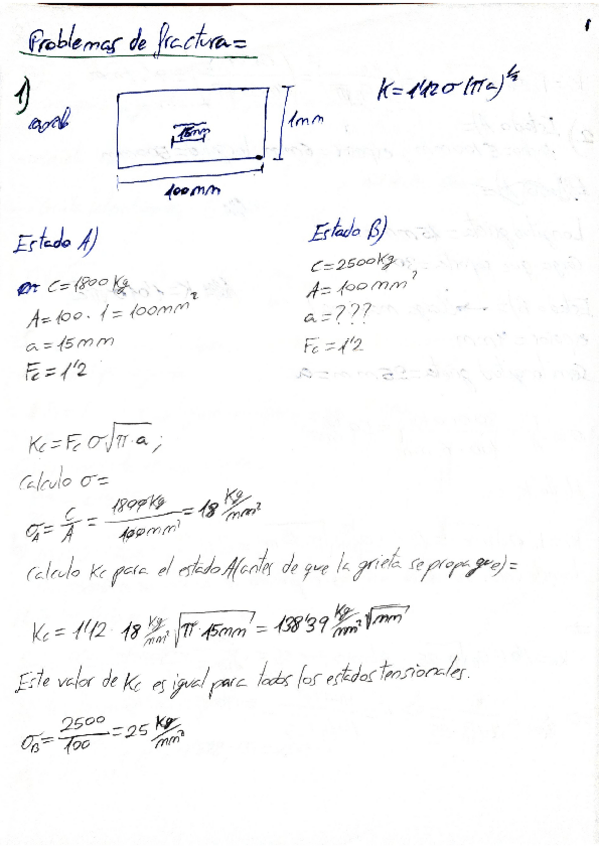 1
Problemas de fractura=
1)
K=1'12 σ (πa)^1/2
15mm
1mm
100mm
Estado A)
C=1800 Kg
A=100·1=100mm²
a=15mm
Fc=1'2
Estado B)
C=2500Kg
A=100mm²
a=???
Fc=1'2
Kc=Fc σ√π·a ;
Calculo σ=
σA= C/A = 1800Kg/100mm² = 18 Kg/mm²
Calculo Kc para el estado A(antes de que la grieta se propague)=
Kc=1'12 · 18 Kg/mm² √π·15mm = 138'39 Kg/mm² √mm
Este valor de Kc es igual para todos los estados tensionales.
σB= 2500/100 = 25 Kg/mm²